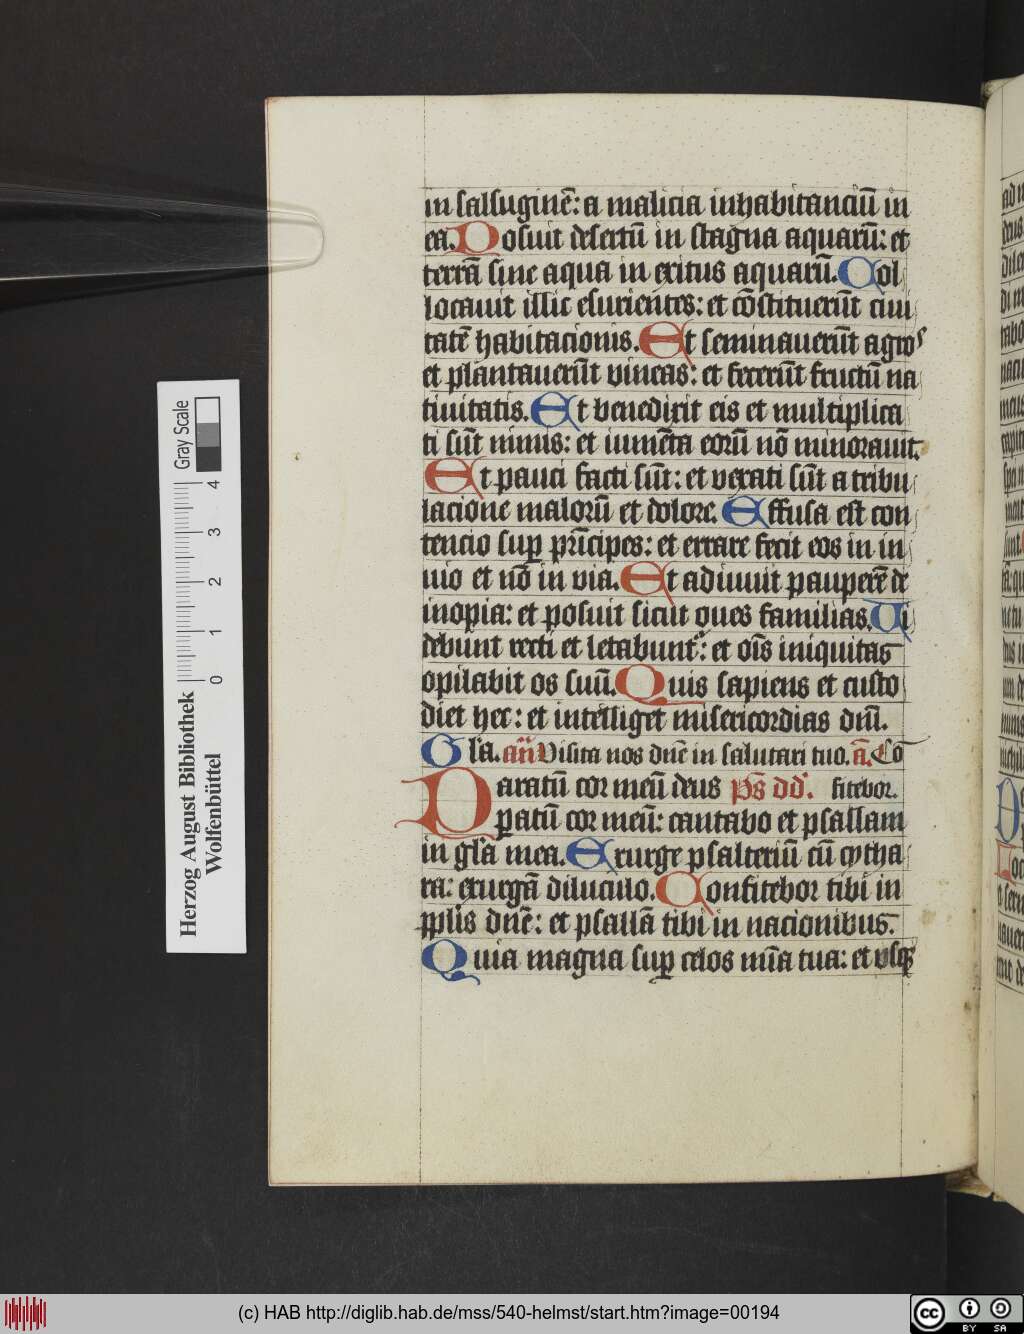 in salsuginē: a malicia inhabitanciū in
ea. Posuit desertū in stagna aquarū: et
terrā sine aqua in exitus aquarū. Col
locauit illic esurientes: et cōstituerūt ciui
tatē habitacionis. Et seminauerūt agros
et plantauerūt vineas: et fecerūt fructū na
tiuitatis. Et benedixit eis et multiplica
ti sūt nimis: et iumēta eorū nō minorauit.
Et pauci facti sūt: et vexati sūt a tribu
lacione malorū et dolore. Effusa est con
tencio sup prīcipes: et errare fecit eos in in
uio et nō in via. Et adiuuit pauperē de
inopia: et posuit sicut oues familias. Ui
debunt recti et letabunt': et oīs iniquitas
opilabit os suū. Quis sapiens et custo
diet hec: et intelliget misericordias dnī.
Gla. an̄ Visita nos dnē in salutari tuo. ā. Cō
Paratū cor meū deus ps̄ dd'. fitebor.
paratū cor meū: cantabo et psallam
in gla mea. Exurge psalteriū cū cytha
ra: exurgā diluculo. Confitebor tibi in
pplis dnē: et psallā tibi in nacionibus.
Quia magna sup celos mīa tua: et vsq
Herzog August Bibliothek
Wolfenbüttel
0 1 2 3 4
Gray Scale
(c) HAB http://diglib.hab.de/mss/540-helmst/start.htm?image=00194
cc BY SA